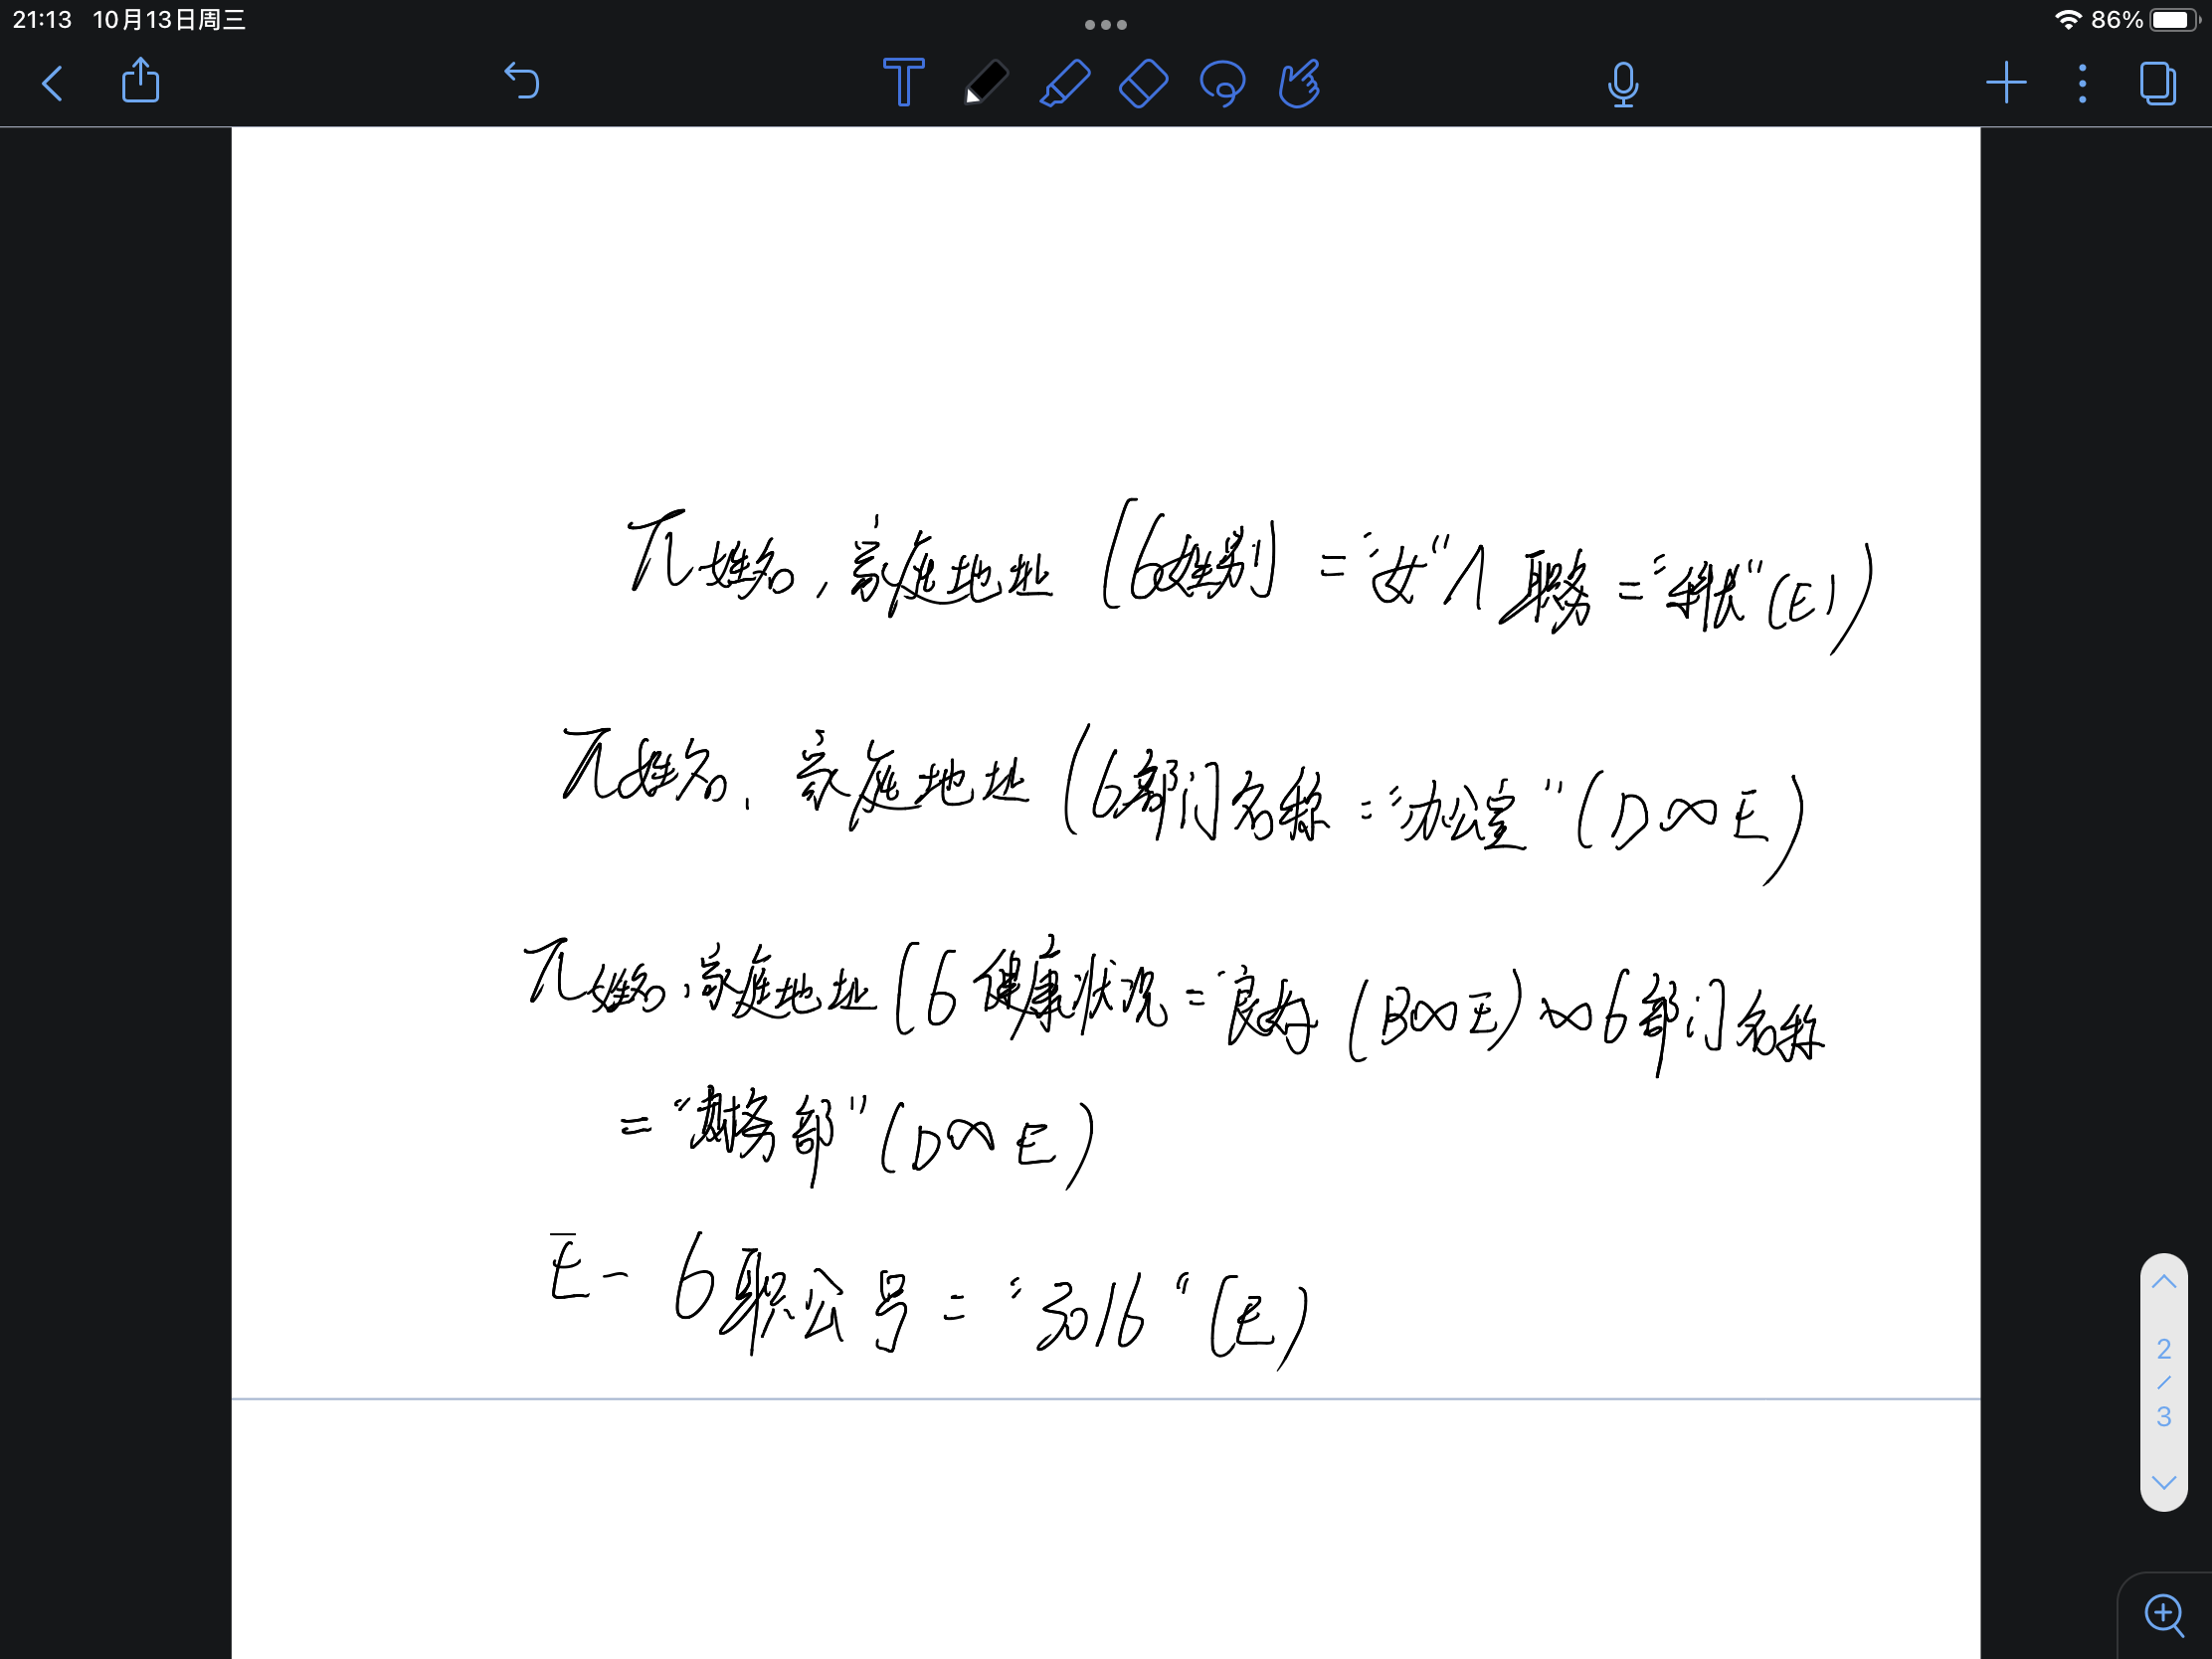 21:13 10月13日周三
86%
π姓名,家庭地址 (6姓别) = "女" ∧ 职务 = "科长" (E))
π姓名, 家庭地址 (6部门名称 = "办公室" (D∞E)
π姓名,家庭地址 (6健康状况 = "良好 (B∞E) ∞ 6部门名称
= "财务部" (D∞E)
E - 6职公号 = "3016" (E)
2
/
3